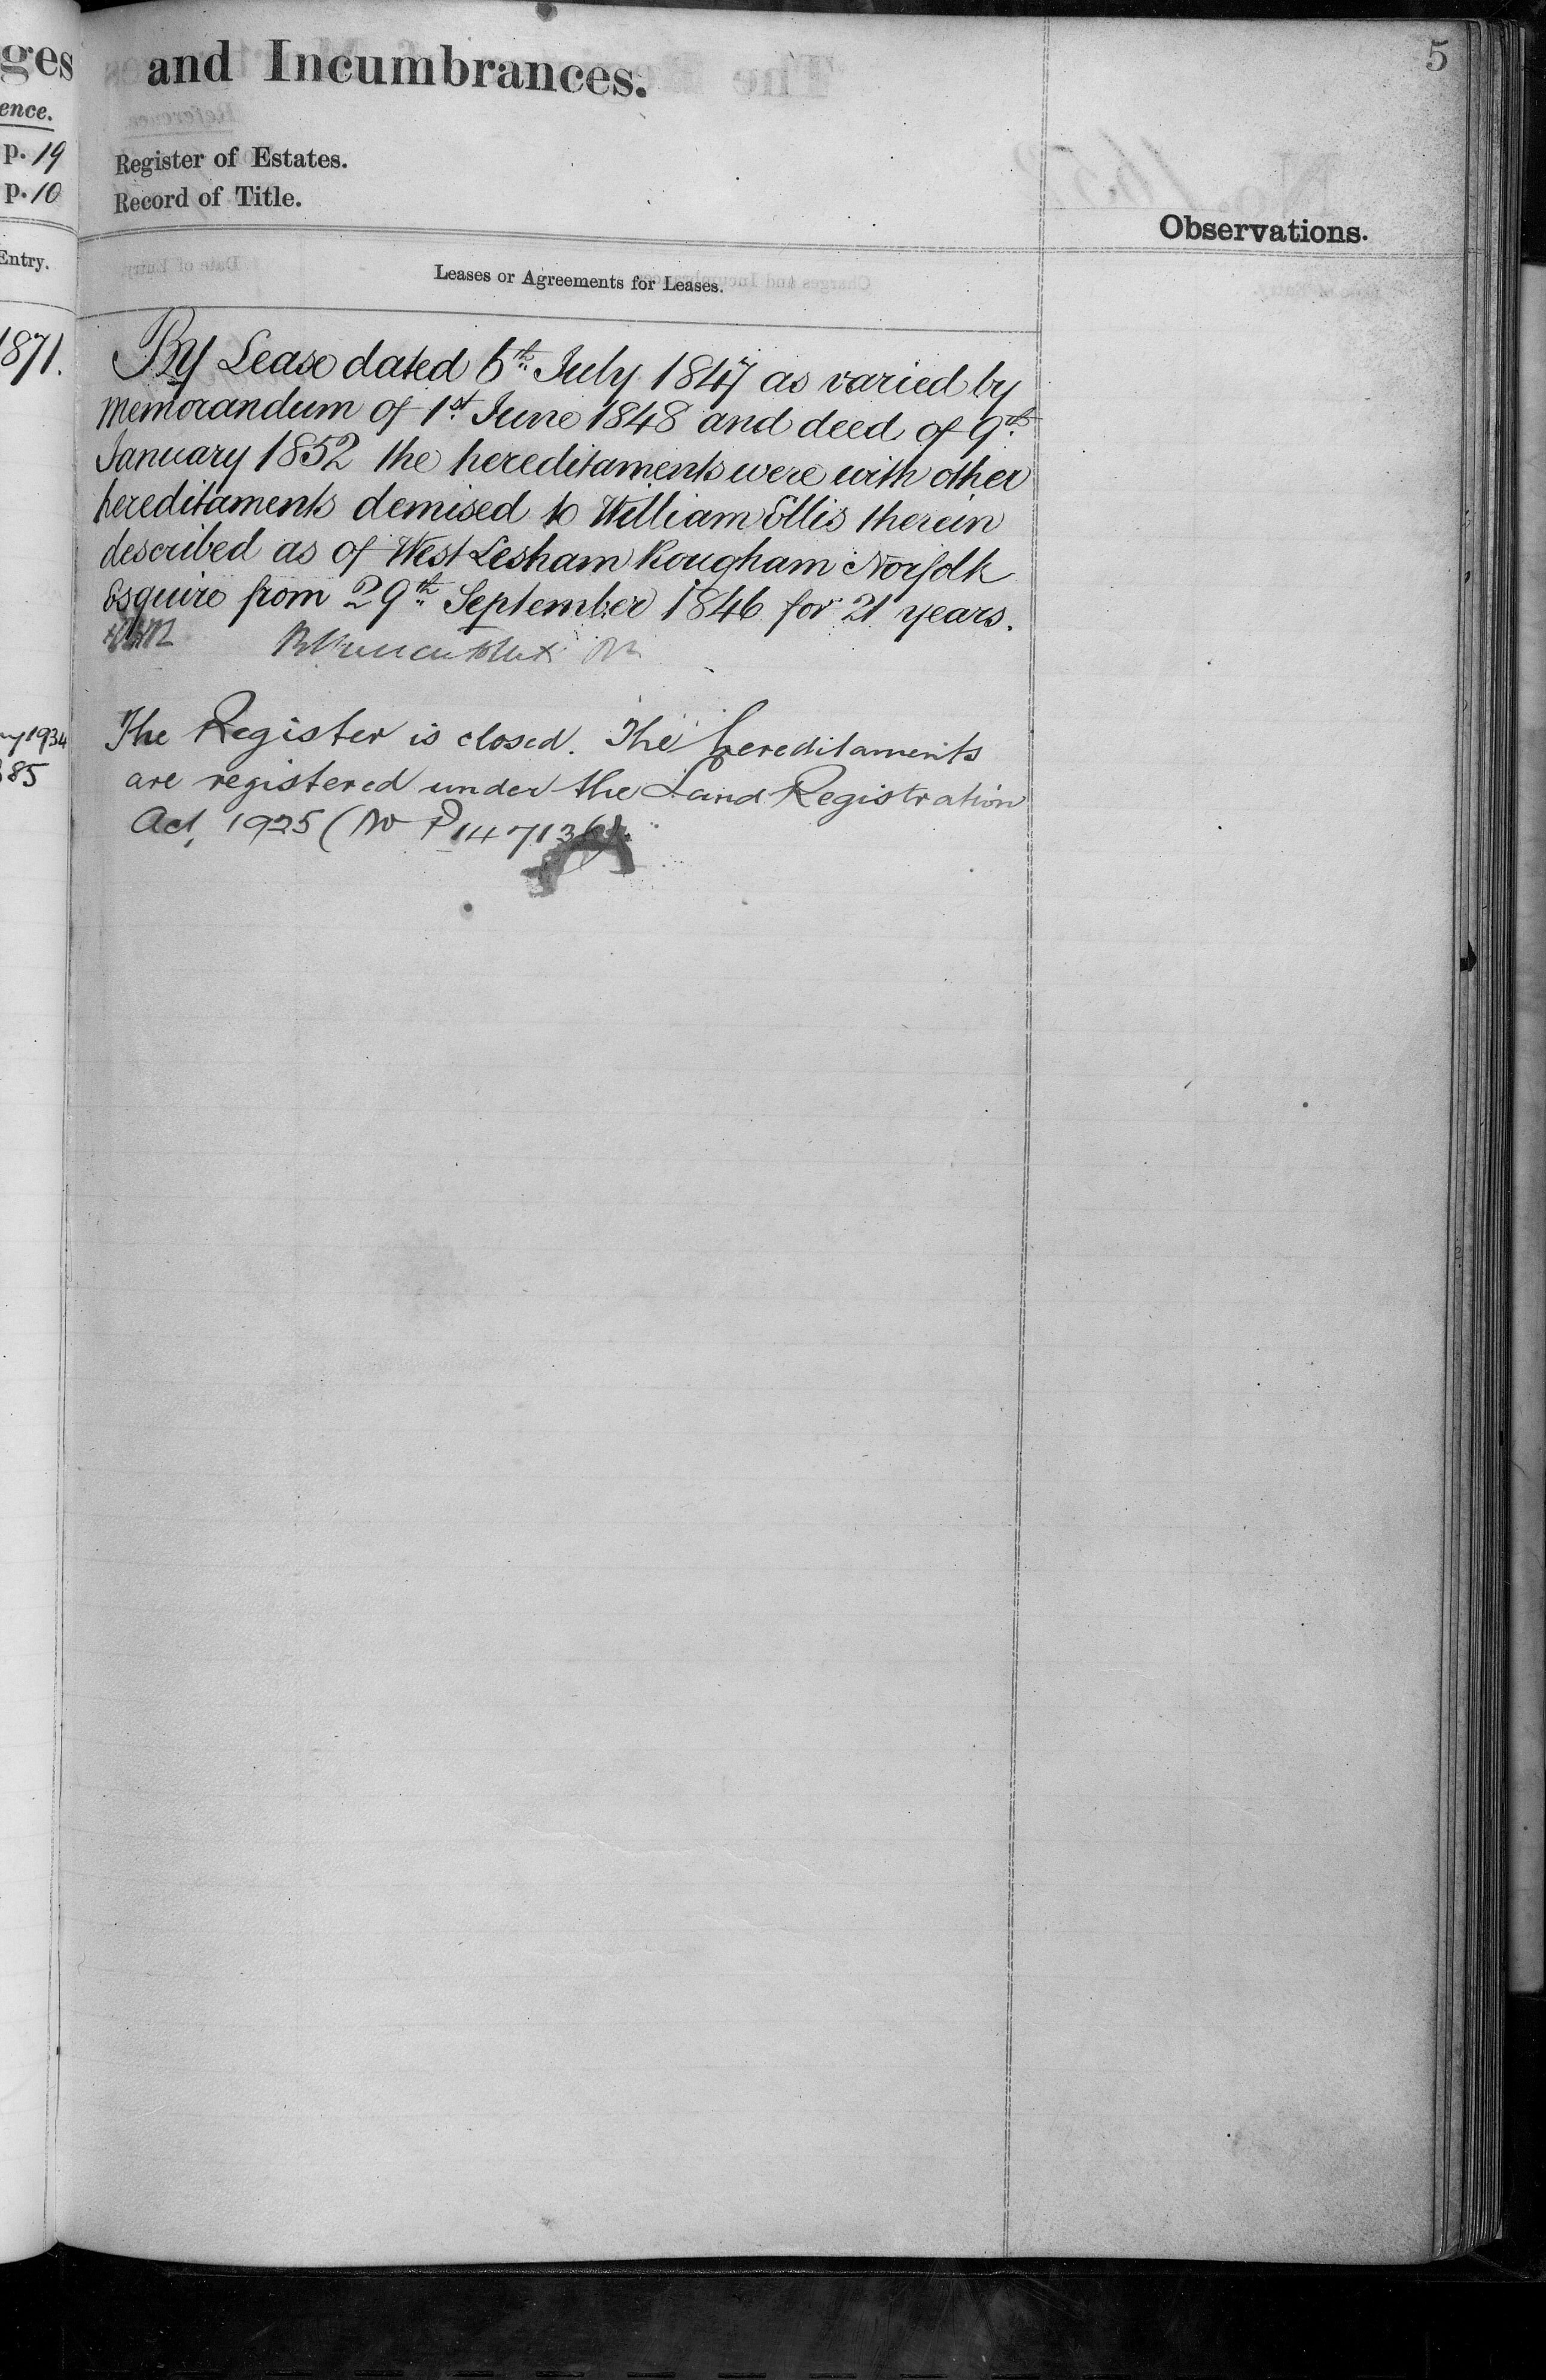 ges
ence.
p. 19
p. 10
Entry.
1871.
1934
85
and Incumbrances.
5
Register of Estates.
Record of Title.
Observations.
Leases or Agreements for Leases.
By Lease dated 6th July 1847 as varied by
Memorandum of 1st June 1848 and deed of 9th
January 1852 the hereditaments were with other
hereditaments demised to William Ellis therein
described as of West Lesham Rougham Norfolk
Esquire from 29th September 1846 for 21 years.
The Register is closed. The hereditaments
are registered under the Land Registration
Act, 1925 (No P147136).